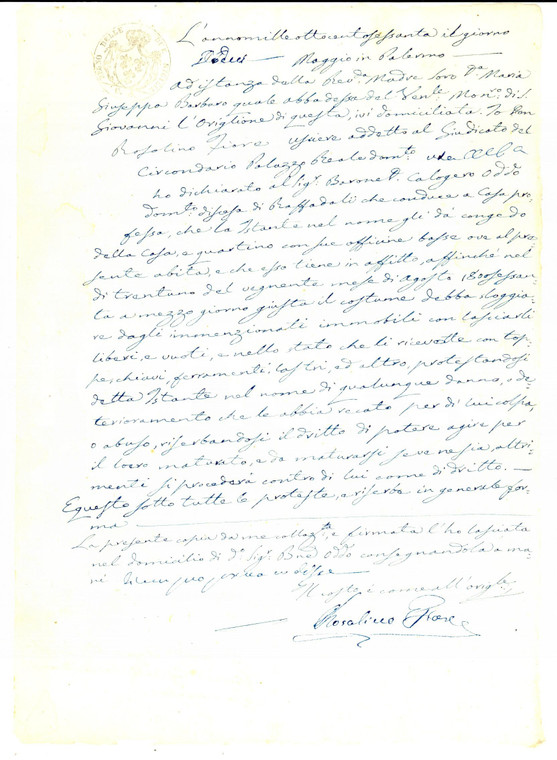 L'anno mille ottocentosessanta il giorno
Maggio in Palermo
Ad istanza della Revda Madre Suor Da Maria
Giuseppa Barbaro quale abbadessa del Venle Monro di S.
Giovanni l'Origlione di questa, ivi domiciliata. Io Don
Rosolino Fiore usciere addetto al Giudicato del
Circondario Palazzo Reale domto
ho dichiarato al Sigr Barone D. Calogero Oddo
domto discesa di Raffadali che conduce a Casa pro-
fessa, che la Istante nel nome gli dà congedo
della Casa, e quartino con sue officine basse ove al pre-
sente abita, e che esso tiene in affitto, affinché nel
dì trentuno del vegnente mese di Agosto 1800sessan-
ta a mezzo giorno giusta il costume debba sloggia-
re dagli immenzionati immobili con lasciarli
liberi, e vuoti, e nello stato che li ricevette con top-
pe, chiavi, ferramenti, lastri, ed altro, protestandosi
detta Istante nel nome di qualunque danno, o de-
terioramento che le abbia recato per di lui colpa,
o abuso, riserbandosi il dritto di potere agire per
il loero maturato, e da maturarsi se ve ne sia, altri-
menti si procederà contro di lui come di dritto. —
E questo sotto tutte le proteste, e riserbe in generale for-
ma
La presente copia da me collazta, e firmata l'ho lasciata
nel domicilio di do Sigr Bne Oddo consegnandola a ma-
ni
Il costo è come all'origle
Rosolino Fiore